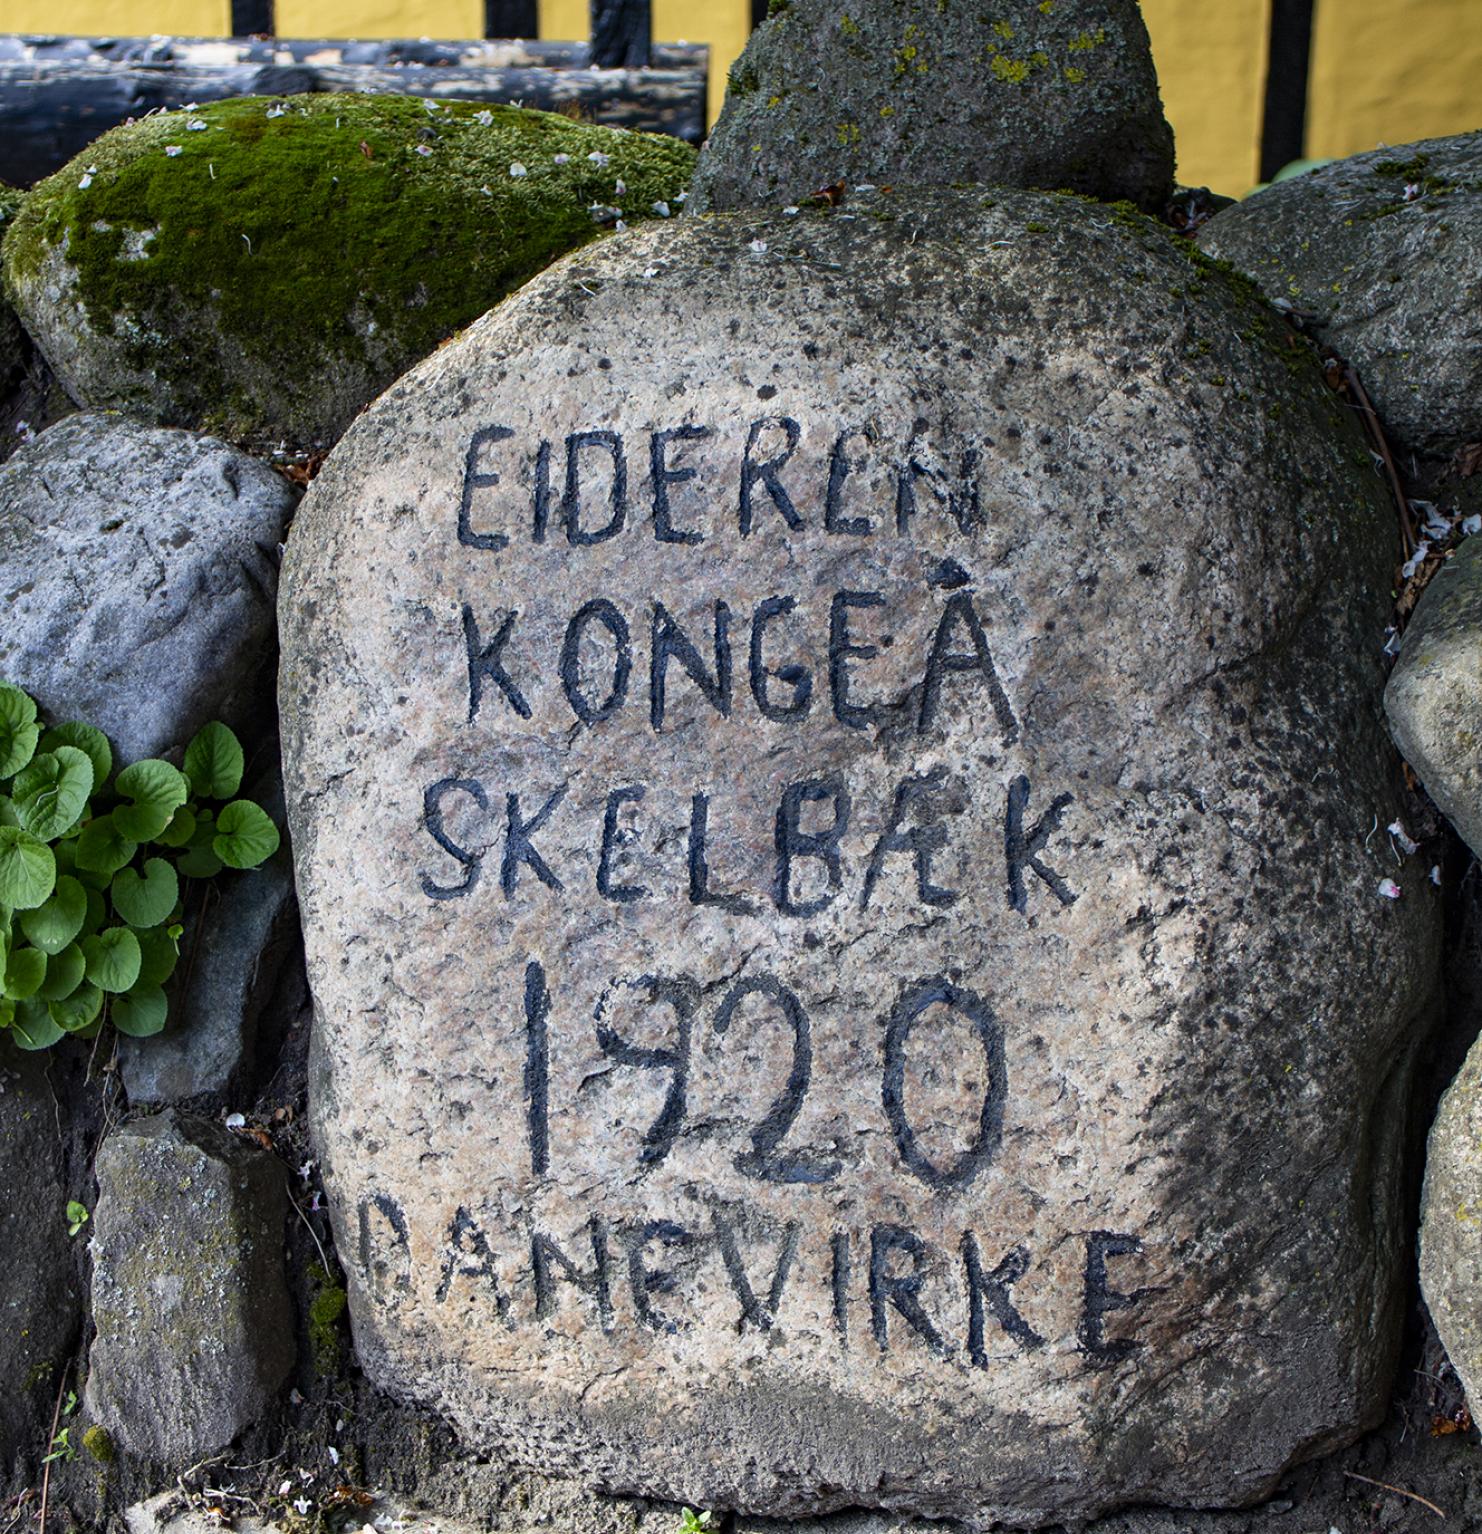 EIDEREN
KONGEÅ
SKELBÆK
1920
DANEVIRKE